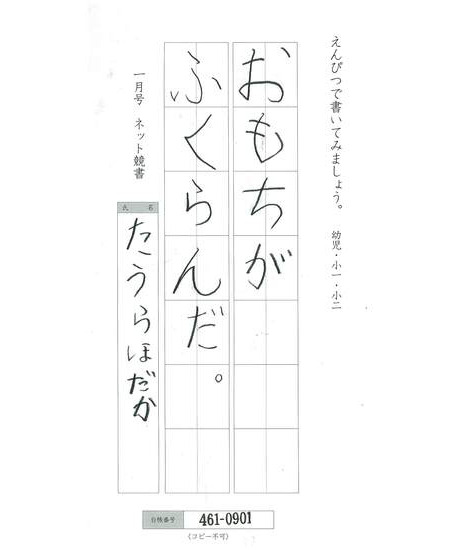 えんぴつで書いてみましょう。 幼児・小一・小二
おもちが
ふくらんだ。
一月号 ネット競書
氏名
たうらほだか
台帳番号 461-0901
(コピー不可)